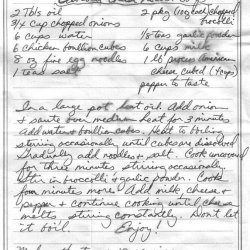 2 Tbls oil 2 pkg (10 oz each) chopped broccoli
3/4 cup chopped onions
6 cups water 1/8 teas garlic powder
6 chicken boullion cubes 6 cups milk
8 oz fine egg noodles 1 lb process American
1 teas salt cheese cubed (4 cups)
pepper to taste
In a large pot heat oil. Add onion
+ saute over medium heat for 3 minutes
Add water + boullion cubes. Heat to boiling
stirring occasionally until cubes are dissolved
Gradually add noodles + salt. Cook uncovered
for three minutes stirring occasionally
Stir in broccoli + garlic powder. Cook
four minutes more. Add milk, cheese +
pepper + continue cooking until cheese
melts stirring constantly. Don't let
it boil. Enjoy!